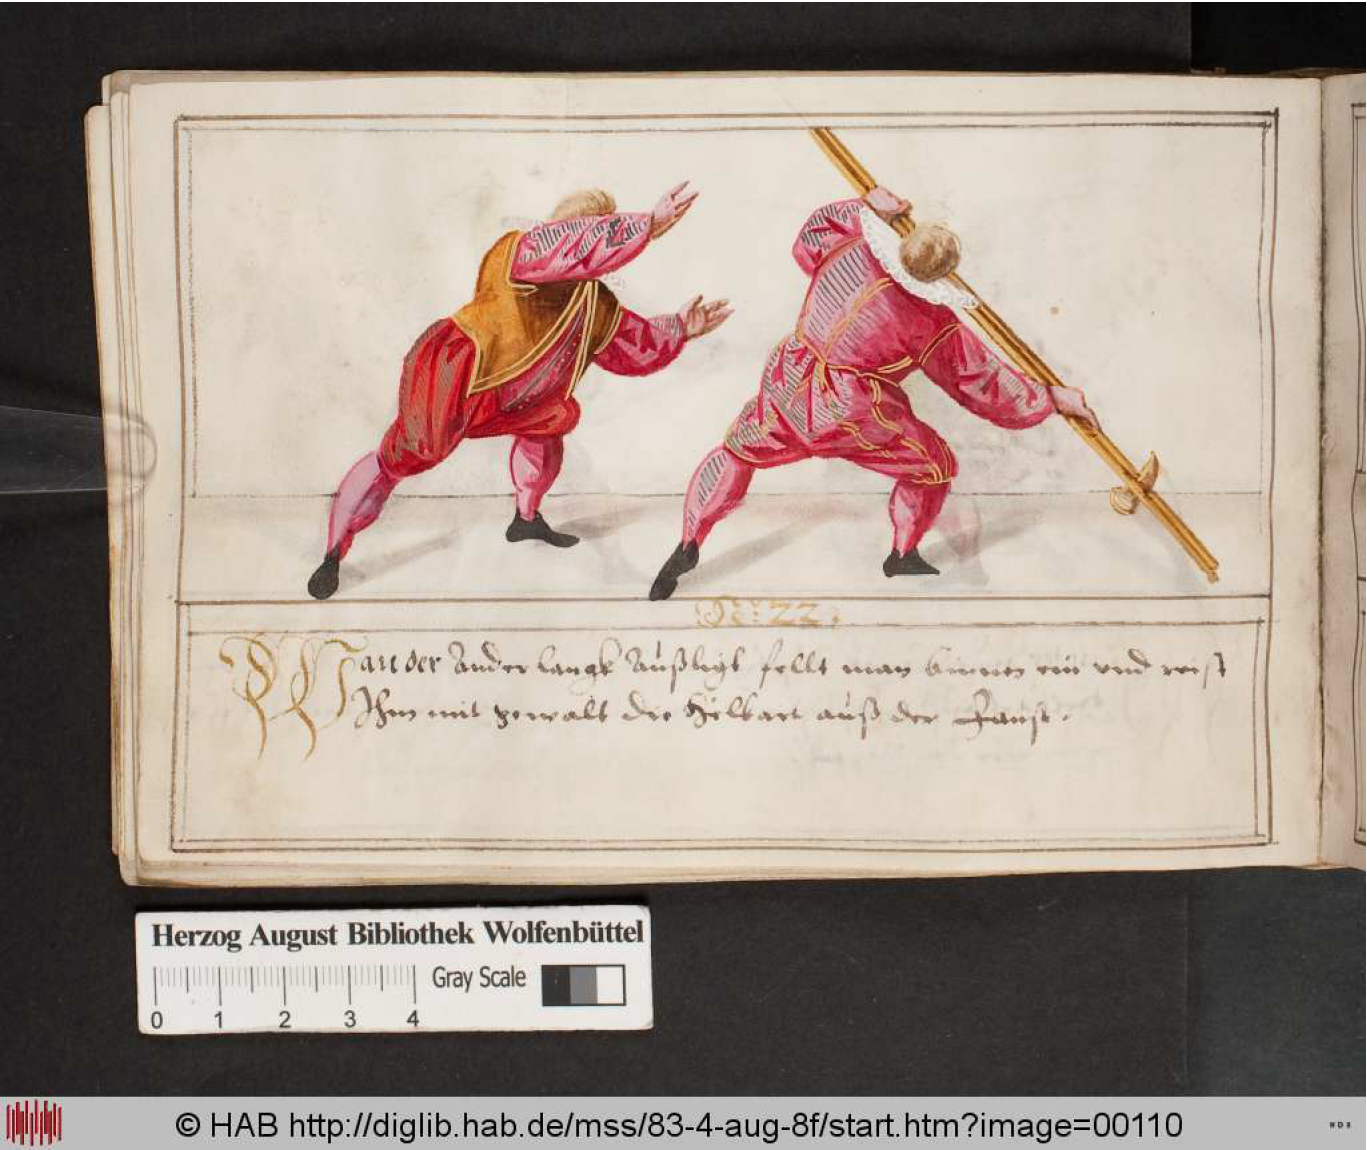 N: 22.
Wan der Ander langk Außligt fellt man binnen ein vnd reist
Ihm mit gewalt die Helbart auß der Faust.
Herzog August Bibliothek Wolfenbüttel
Gray Scale
0 1 2 3 4
© HAB http://diglib.hab.de/mss/83-4-aug-8f/start.htm?image=00110